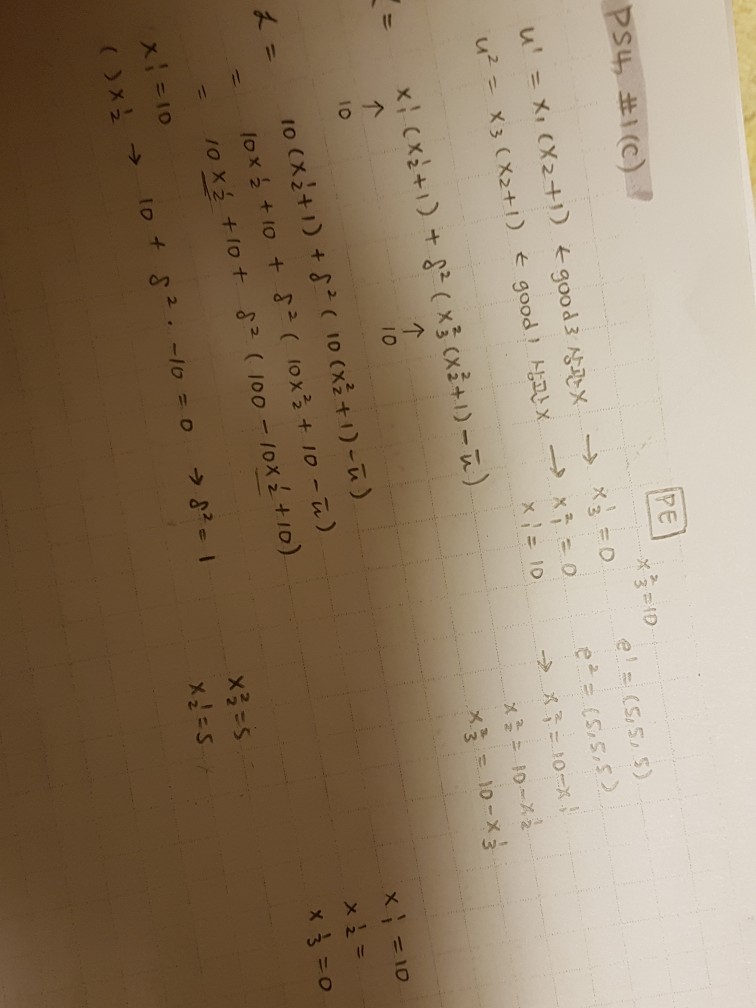 PS4, #1(C)
PE
x₃²=10
e¹ = (5,5,5)
e² = (5,5,5)
u¹ = x₁(x₂+1) ← good3 상관X → x₃¹ = 0
u² = x₃(x₂+1) ← good1 상관X → x₁² = 0
x₁¹ = 10
→ x₁² = 10-x₁¹
x₂² = 10-x₂¹
x₃² = 10-x₃¹
= x₁¹(x₂¹+1) + δ²(x₃²(x₂²+1)-ū)
↑ ↑
10 10
L = 10(x₂¹+1) + δ²(10(x₂²+1)-ū)
= 10x₂¹+10 + δ²(10x₂²+10-ū)
= 10x₂¹+10+ δ²(100-10x₂¹+10)
x₁¹=10
( )x₂¹ → 10 + δ²·-10=0 → δ²=1
x₂²=5
x₂¹=5
x₁¹=10
x₂¹=
x₃¹=0